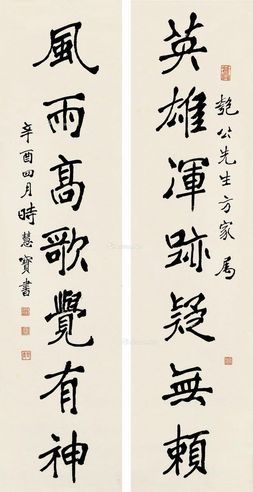 匏公先生方家属
英雄渾跡疑無賴
風雨髙歌覺有神
辛酉四月時慧寶書